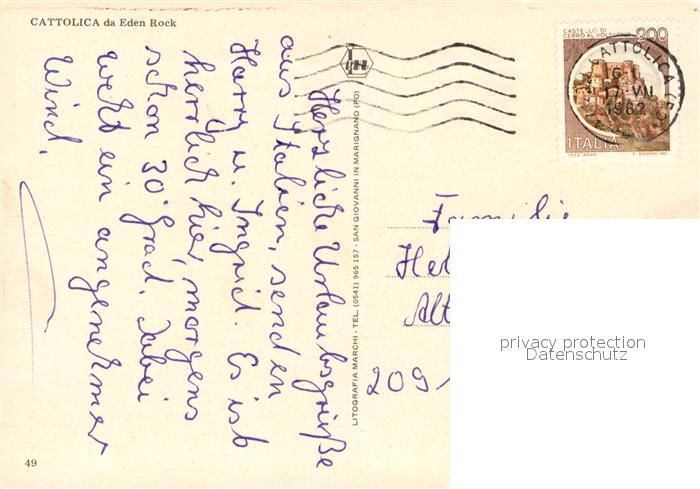 CATTOLICA da Eden Rock
Herzliche Urlaubsgrüße
aus Italien, senden
Harry u. Ingrid. Es ist
herrlich hier, morgens
schon 30 Grad. Dabei
weht ein angenehmer
Wind.
49
LITOGRAFIA MARCHI - TEL. (0541) 965 157 - SAN GIOVANNI IN MARIGNANO (FO)
CASTELLO DI
CERRO AL VOLTURNO 200
ITALIA
CATTOLICA (FO)
17-VII
1982
Familie
Hel
Alt
209
privacy protection
Datenschutz